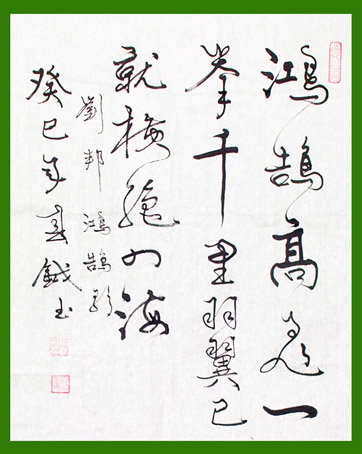 鴻鵠高飛一
舉千里羽翼已
就橫絕四海
劉邦鴻鵠歌
癸巳年春